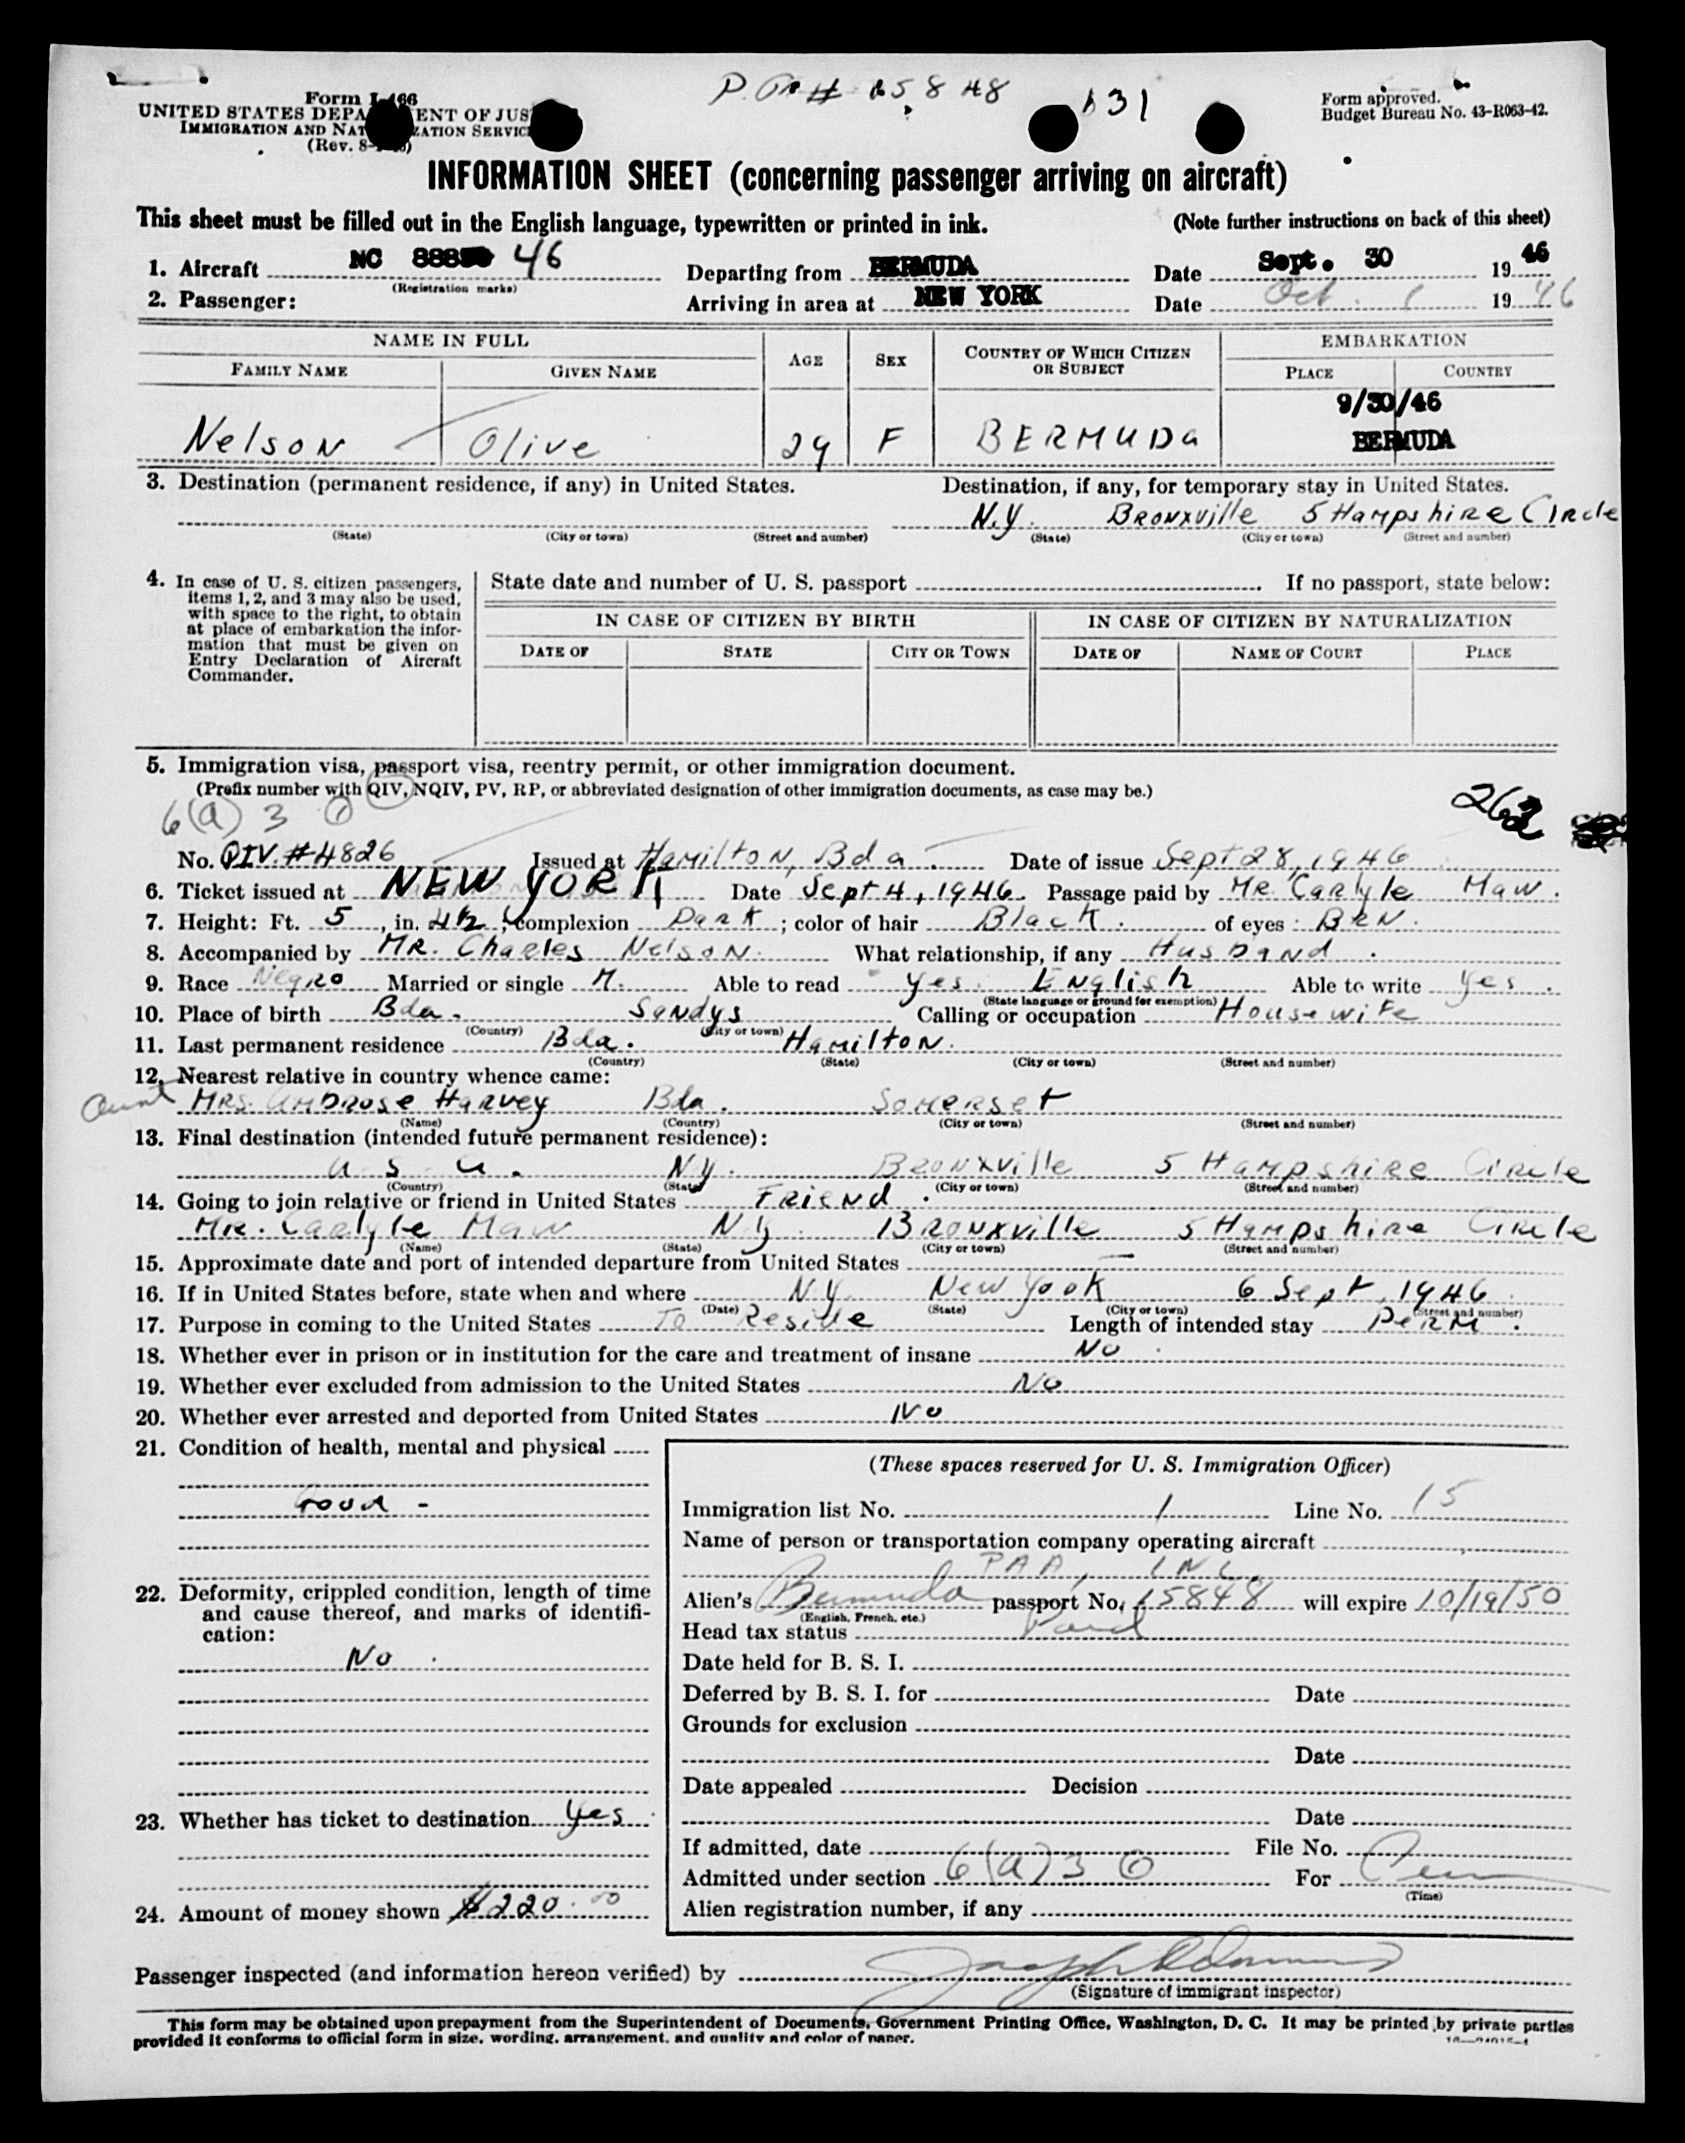 P.P.# 15848 131
Form I-466
UNITED STATES DEPA ENT OF JUS
IMMIGRATION AND NAT ZATION SERVIC
(Rev. 8-
Form approved.
Budget Bureau No. 43-R063-42.
INFORMATION SHEET (concerning passenger arriving on aircraft)
This sheet must be filled out in the English language, typewritten or printed in ink. (Note further instructions on back of this sheet)
1. Aircraft NC 888 46 Departing from BERMUDA Date Sept. 30 1946
(Registration marks)
2. Passenger: Arriving in area at NEW YORK Date Oct. 1 1946
NAME IN FULL AGE SEX COUNTRY OF WHICH CITIZEN OR SUBJECT EMBARKATION
FAMILY NAME GIVEN NAME PLACE COUNTRY
9/30/46
Nelson Olive 29 F BERMUDa BERMUDA
3. Destination (permanent residence, if any) in United States. Destination, if any, for temporary stay in United States.
N.y. Bronxville 5 Hampshire Circle
(State) (City or town) (Street and number) (State) (City or town) (Street and number)
4. In case of U. S. citizen passengers, items 1, 2, and 3 may also be used, with space to the right, to obtain at place of embarkation the information that must be given on Entry Declaration of Aircraft Commander.
State date and number of U. S. passport If no passport, state below:
IN CASE OF CITIZEN BY BIRTH IN CASE OF CITIZEN BY NATURALIZATION
DATE OF STATE CITY OR TOWN DATE OF NAME OF COURT PLACE
5. Immigration visa, passport visa, reentry permit, or other immigration document.
(Prefix number with QIV, NQIV, PV, RP, or abbreviated designation of other immigration documents, as case may be.)
6(a) 3 0 262
No. QIV. #4826 Issued at Hamilton, Bda. Date of issue Sept 28, 1946
6. Ticket issued at NEW YORK Date Sept 4, 1946 Passage paid by MR. Carlyle Maw.
7. Height: Ft. 5, in. 4½; complexion Dark; color of hair Black. of eyes: BRN.
8. Accompanied by MR. Charles Nelson. What relationship, if any Husband.
9. Race Negro Married or single M. Able to read yes. English Able to write yes.
(State language or ground for exemption)
10. Place of birth Bda. Sandys Calling or occupation Housewife
(Country) (City or town)
11. Last permanent residence Bda. Hamilton.
(Country) (State) (City or town) (Street and number)
12. Nearest relative in country whence came:
Aunt MRS. Ambrose Harvey Bda. Somerset
(Name) (Country) (City or town) (Street and number)
13. Final destination (intended future permanent residence):
U.S.A. N.y. Bronxville 5 Hampshire Circle
(Country) (State) (City or town) (Street and number)
14. Going to join relative or friend in United States Friend.
MR. Carlyle Maw N.y. Bronxville 5 Hampshire Circle
(Name) (State) (City or town) (Street and number)
15. Approximate date and port of intended departure from United States —
16. If in United States before, state when and where N.y. New Yook 6 Sept, 1946
(Date) (State) (City or town) (Street and number)
17. Purpose in coming to the United States To Reside Length of intended stay Perm.
18. Whether ever in prison or in institution for the care and treatment of insane No
19. Whether ever excluded from admission to the United States No
20. Whether ever arrested and deported from United States No
21. Condition of health, mental and physical
Good -
22. Deformity, crippled condition, length of time and cause thereof, and marks of identification:
No.
23. Whether has ticket to destination yes.
24. Amount of money shown $220.00
(These spaces reserved for U. S. Immigration Officer)
Immigration list No. 1 Line No. 15
Name of person or transportation company operating aircraft
PAA, INC.
Alien's Bermuda passport No. 15848 will expire 10/19/50
(English, French, etc.)
Head tax status Paid
Date held for B. S. I.
Deferred by B. S. I. for Date
Grounds for exclusion
Date
Date appealed Decision
Date
If admitted, date File No.
Admitted under section 6(a)3 0 For Perm
(Time)
Alien registration number, if any
Passenger inspected (and information hereon verified) by
(Signature of immigrant inspector)
This form may be obtained upon prepayment from the Superintendent of Documents, Government Printing Office, Washington, D. C. It may be printed by private parties
provided it conforms to official form in size, wording, arrangement, and quality and color of paper.